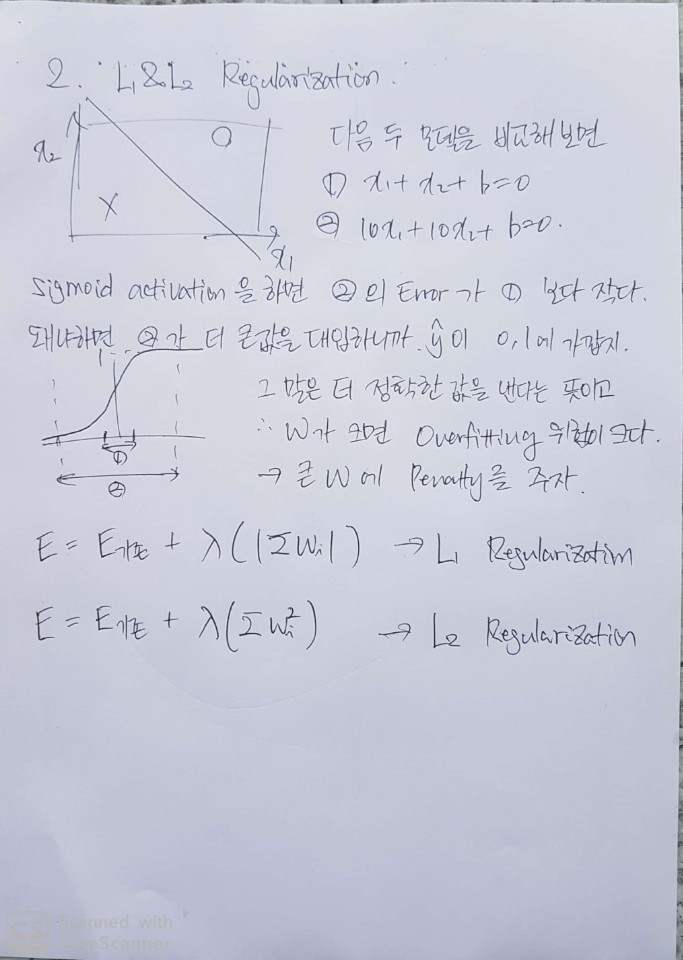 2. L₁&L₂ Regularization.
x₂
O
X
x₁
다음 두 모델을 비교해보면
① x₁+x₂+b=0
② 10x₁+10x₂+b=0.
Sigmoid activation을 하면 ②의 Error가 ① 보다 작다.
왜냐하면 ②가 더 큰값을 대입하니까. ŷ이 0,1에 가깝지.
1
①
②
그 말은 더 정확한 값을 낸다는 뜻이고
∴ W가 크면 Overfitting 위험이 크다.
→ 큰 W에 Penalty를 주자.
E = E기존 + λ(|ΣWᵢ|) → L₁ Regularization
E = E기존 + λ(ΣWᵢ²) → L₂ Regularization
CS Scanned with
CamScanner